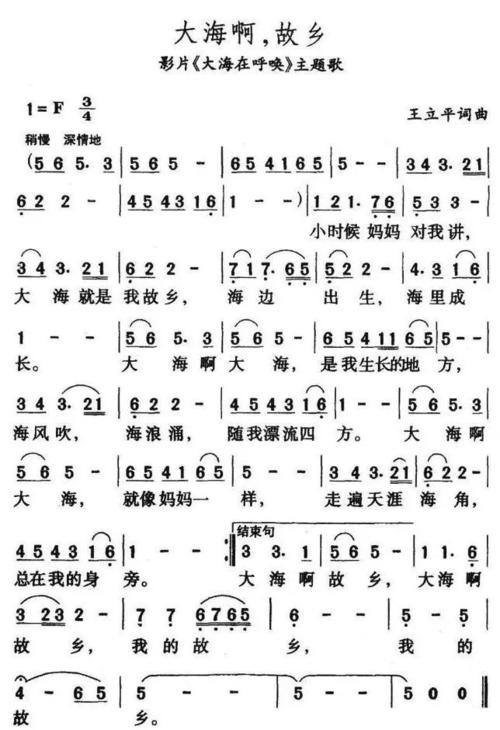 大海啊,故乡
影片《大海在呼唤》主题歌
1=F 3/4
王立平词曲
稍慢 深情地
(5 6 5. 3 | 5 6 5 - | 6 5 4 1 6 5 | 5 - - | 3 4 3. 2 1 |
6 2 2 - | 4 5 4 3 1 6 | 1 - - ) | 1 2 1. 7 6 | 5 3 3 - |
小时候 妈妈 对我 讲,
3 4 3. 2 1 | 6 2 2 - | 7 1 7. 6 5 | 5 2 2 - | 4. 3 1 6 |
大 海 就是 我故 乡, 海 边 出 生, 海 里 成
1 - - | 5 6 5. 3 | 5 6 5 - | 6 5 4 1 1 6 5 | 5 - - |
长。 大 海 啊 大 海, 是我生长的地 方,
3 4 3. 2 1 | 6 2 2 - | 4 5 4 3 1 6 | 1 - - | 5 6 5. 3 |
海风吹, 海浪涌, 随我漂流四 方。 大 海 啊
5 6 5 - | 6 5 4 1 6 5 | 5 - - | 3 4 3. 2 1 | 6 2 2 - |
大 海, 就像妈妈一 样, 走遍天涯 海 角,
结束句
4 5 4 3 1 6 | 1 - - :| 3 3. 1 | 5 6 5 - | 1 1. 6 |
总在我的身 旁。 大 海 啊 故 乡, 大海 啊
3 2 3 2 - | 7 7 6 7 6 5 | 6 - - | 5 - 5 |
故 乡, 我 的 故 乡, 我 的
4 - 6 5 | 5 - - | 5 - - | 5 0 0 ‖
故 乡。